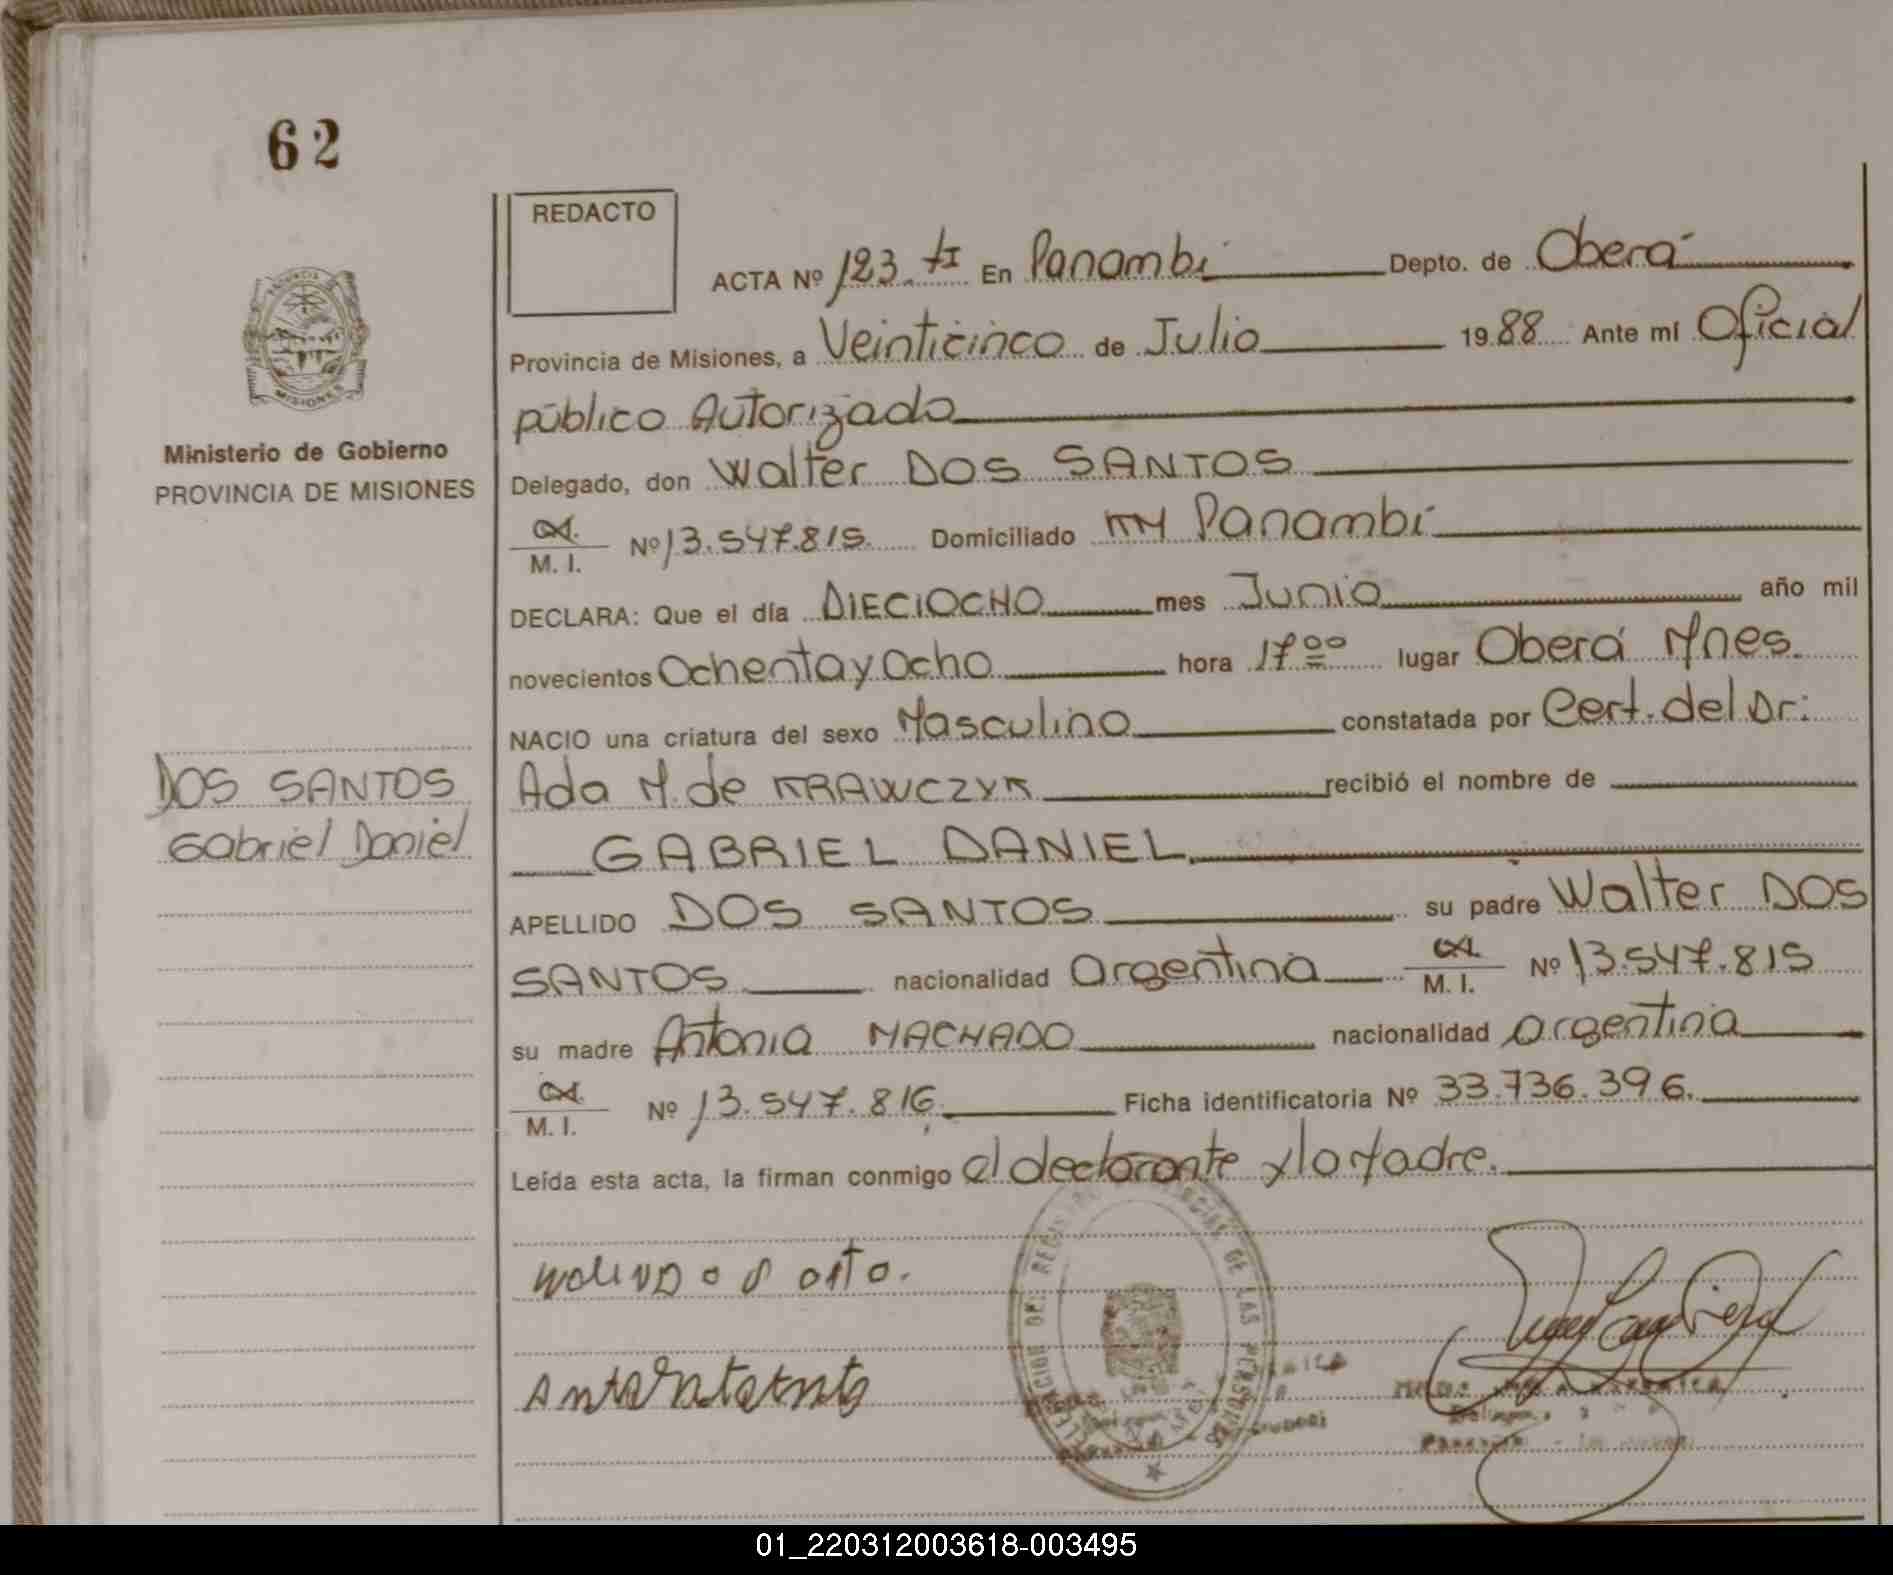 62
REDACTO
ACTA Nº 123. tI En Panambi Depto. de Oberá
Provincia de Misiones, a Veinticinco de Julio 1988 Ante mí Oficial
público Autorizado
Ministerio de Gobierno
PROVINCIA DE MISIONES
Delegado, don Walter DOS SANTOS
M. I. Nº 13.547.815 Domiciliado Panambí
DECLARA: Que el día DIECIOCHO mes Junio año mil
novecientos Ochenta y Ocho hora 17 00 lugar Oberá Mnes.
NACIO una criatura del sexo Masculino constatada por Cert. del Dr:
DOS SANTOS
Gabriel Daniel
Ada M. de KRAWCZYK recibió el nombre de
GABRIEL DANIEL
APELLIDO DOS SANTOS su padre Walter DOS
SANTOS nacionalidad argentina M. I. Nº 13.547.815
su madre Antonia MACHADO nacionalidad argentina
M. I. Nº 13.547.816 Ficha identificatoria Nº 33.736.396.
Leída esta acta, la firman conmigo el declarante y la Madre.
01_220312003618-003495